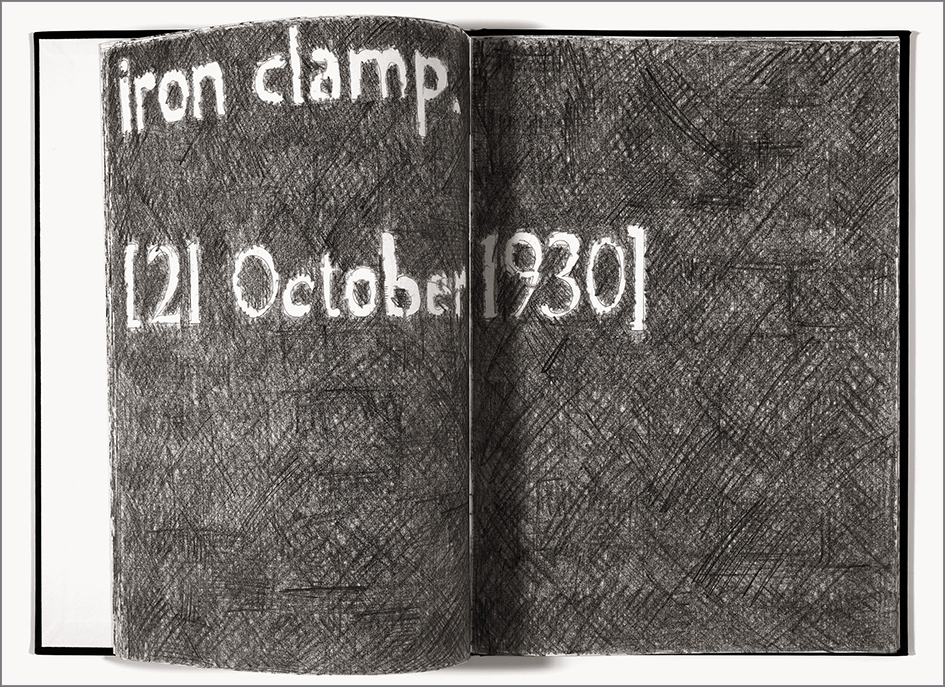 iron clamp.
[21 October 1930]